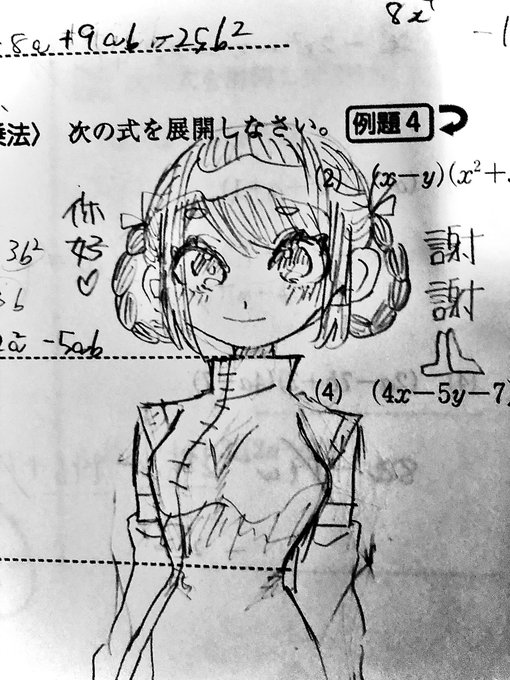 -8a+9ab-25b²
8x
-1
乗法〉 次の式を展開しなさい。 例題4
(2) (x-y)(x²+
你好♡
謝謝
3b²
-5ab
(4) (4x-5y-7)